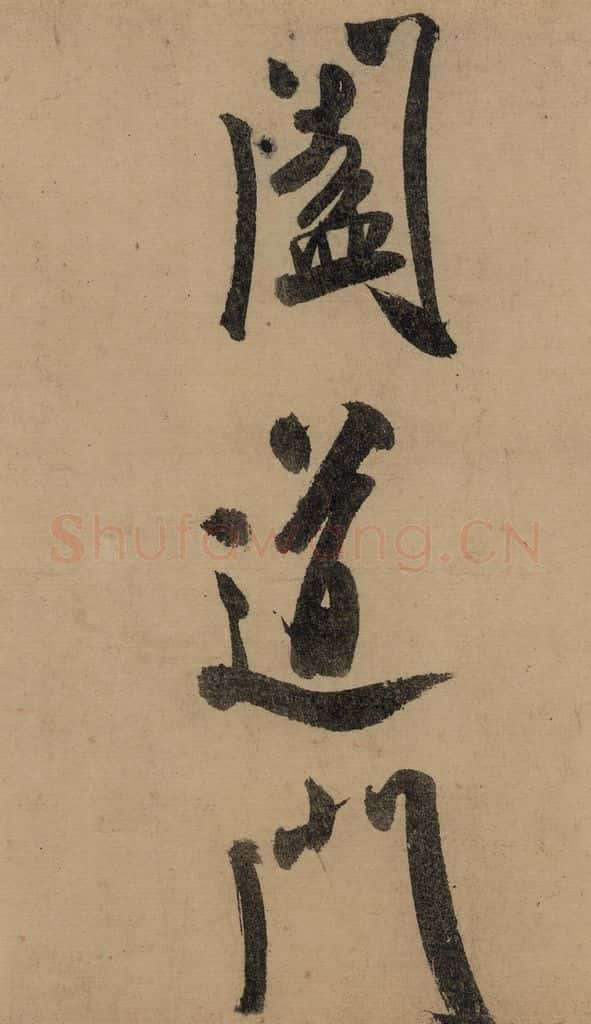 闔道門
Shufawang.CN